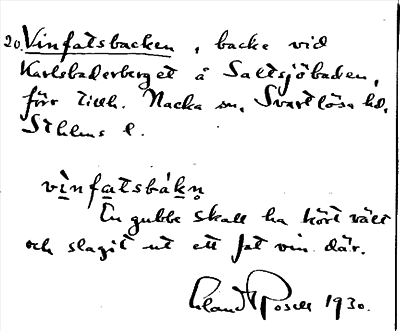 20. Vinfatsbacken, backe vid
Karlsbaderberget å Saltsjöbaden,
förr tillh. Nacka sn, Svartlösa hd,
Sthlms l.
vìnfatsbákn̥
En gubbe skall ha kört vält
och slagit ut ett fat vin där.
1930.